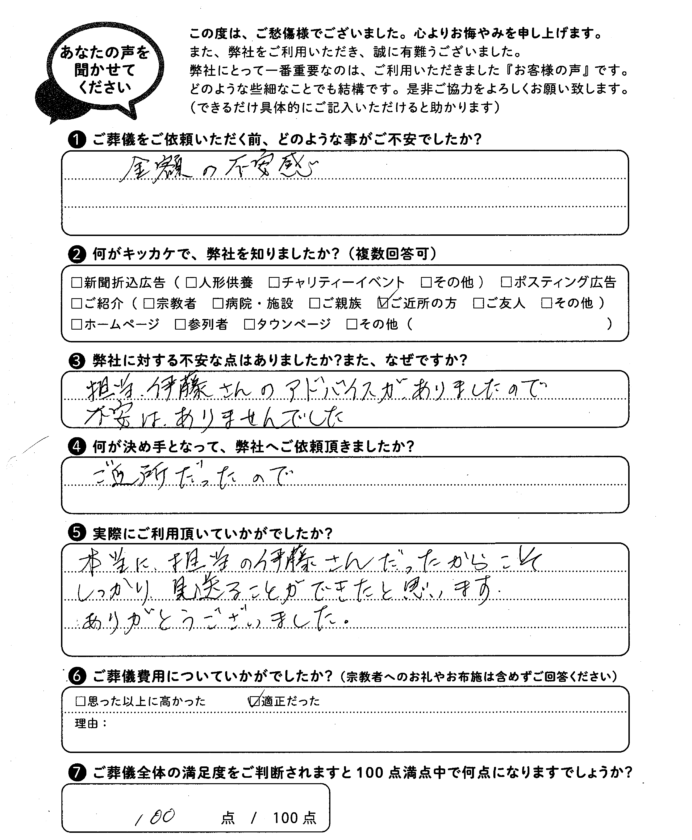 あなたの声を
聞かせて
ください
この度は、ご愁傷様でございました。心よりお悔やみを申し上げます。
また、弊社をご利用いただき、誠に有難うございました。
弊社にとって一番重要なのは、ご利用いただきました『お客様の声』です。
どのような些細なことでも結構です。是非ご協力をよろしくお願い致します。
（できるだけ具体的にご記入いただけると助かります）
❶ ご葬儀をご依頼いただく前、どのような事がご不安でしたか？
金額の不安感
❷ 何がキッカケで、弊社を知りましたか？（複数回答可）
□新聞折込広告（□人形供養 □チャリティーイベント □その他） □ポスティング広告
□ご紹介（□宗教者 □病院・施設 □ご親族 ☑ご近所の方 □ご友人 □その他）
□ホームページ □参列者 □タウンページ □その他（ ）
❸ 弊社に対する不安な点はありましたか？また、なぜですか？
担当、伊藤さんのアドバイスがありましたので
不安は、ありませんでした
❹ 何が決め手となって、弊社へご依頼頂きましたか？
ご近所だったので
❺ 実際にご利用頂いていかがでしたか？
本当に、担当の伊藤さんだったからこそ
しっかり見送ることができたと思います。
ありがとうございました。
❻ ご葬儀費用についていかがでしたか？（宗教者へのお礼やお布施は含めずご回答ください）
□思った以上に高かった ☑適正だった
理由：
❼ ご葬儀全体の満足度をご判断されますと100点満点中で何点になりますでしょうか？
100 点 / 100点